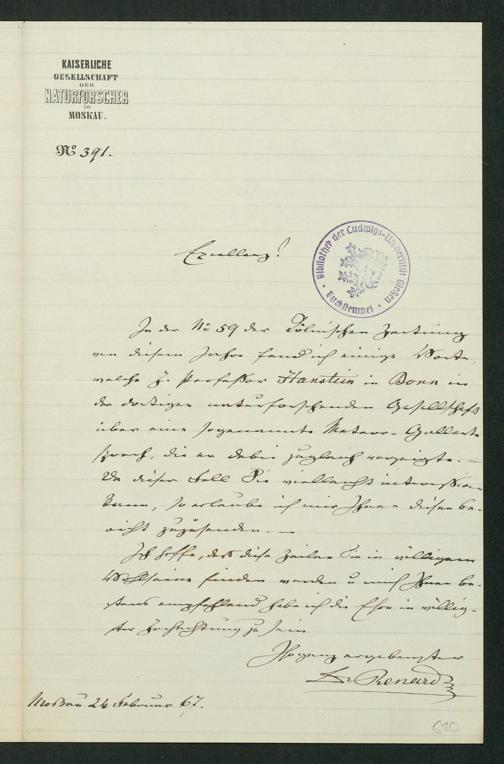 KAISERLICHE
GESELLSCHAFT
DER
NATURFORSCHER
in
MOSKAU.
No 391.
Excellenz!
Bibliothek der Ludwigs-Universität Gießen
In der No 59 der Cölnischen Zeitung
von diesem Jahre fand ich einige Worte,
welche H. Professor Hanstein in Bonn in
der dortigen naturforschenden Gesellschaft
über eine sogenannte Meteor-Gallerte
sprach, die er dabei zugleich vorzeigte. —
Da dieser Fall Sie vielleicht interessiren
kann, so erlaube ich mir Ihnen diesen Be-
richt zuzusenden. —
Ich hoffe, daß diese Zeilen Sie in völligem
Wohlseine finden werden u mich Ihnen be-
stens empfehlend habe ich die Ehre in völlig-
ster Hochachtung zu sein
Ihr ganz ergebenster
Dr Renard
Moskau 24 Februar 67.
610